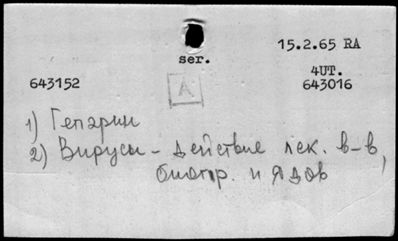 15.2.65 RA
ser.
4UT.
643152
643016
A
1) Гепарин
2) Вирусы – действие лек. в-в,
биопр. и ядов